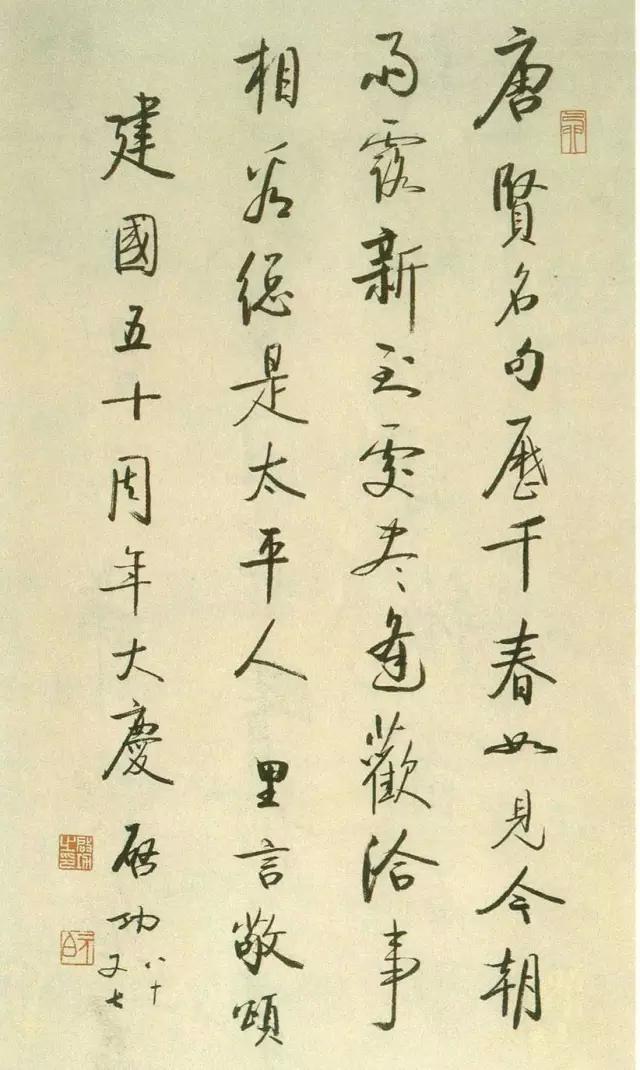 唐賢名句歷千春如見今朝
雨露新到處盡逢歡洽事
相看總是太平人 里言敬頌
建國五十周年大慶 启功 八十又七
啟功之印
元白